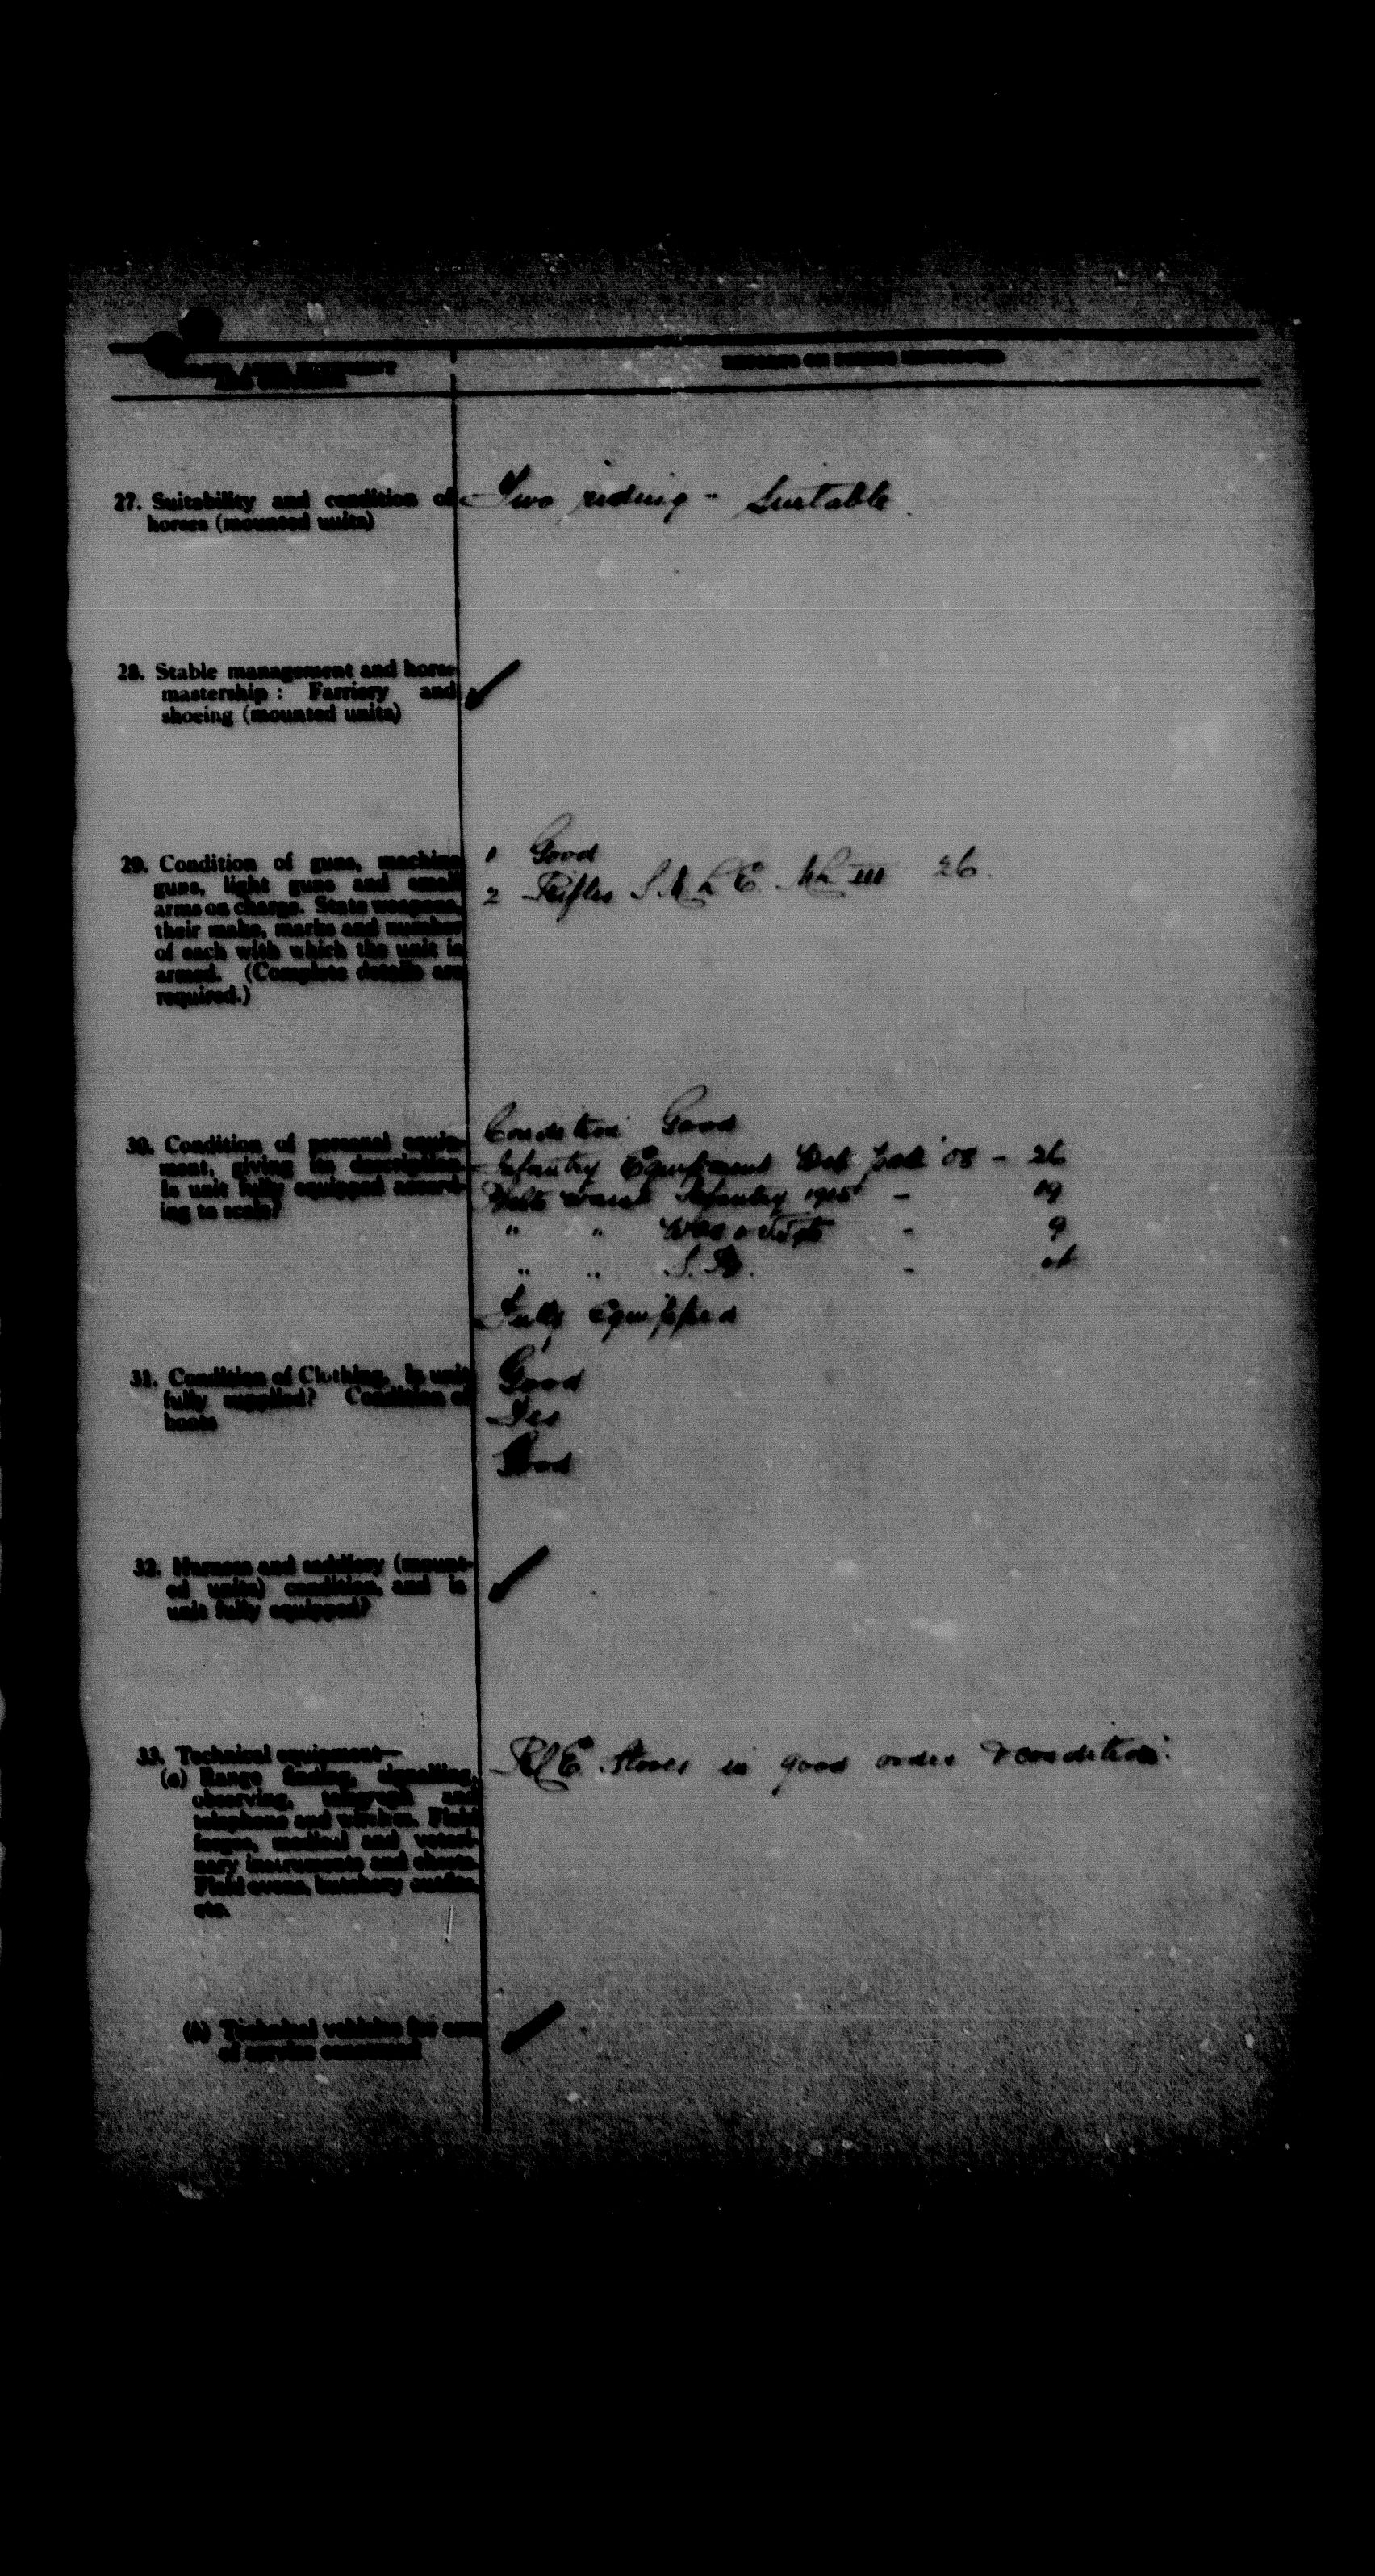 27. Suitability and condition of
horses (mounted units)
Two riding - Suitable.
28. Stable management and horse
mastership : Farriery and
shoeing (mounted units)
29. Condition of guns, machine
guns, light guns and small
arms on charge. State weapons,
their make, marks and number
of each with which the unit is
armed. (Complete details are
required.)
1 Good
2 Rifles S M L E. Mk III 26.
30. Condition of personal equip-
ment, giving its description.
Is unit fully equipped accord-
ing to scale?
Condition Good
Infantry Equipment '08 - 26
Belts waist Infantry 1915 - 19
" " - 9
" " S.B. -
Fully Equipped
31. Condition of Clothing. Is unit
fully supplied? Condition of
boots
Good
Yes
Good
32. Harness and saddlery (mount-
ed units) condition, and is
unit fully equipped?
33. Technical equipment—
(a) Range finding, signalling,
observing, telegraph and
telephone and wireless. Field
forges, medical and veteri-
nary instruments and chests.
Field ovens, butchery outfits,
etc.
Stores in good order & condition.
(b) Technical vehicles for arm
of service concerned